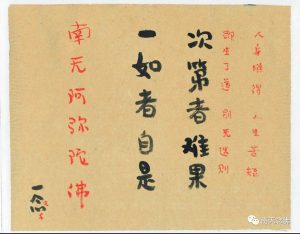 人身难得 人生苦短
即生了道 别无选则
次第者难果
一如者自是
南无阿弥陀佛